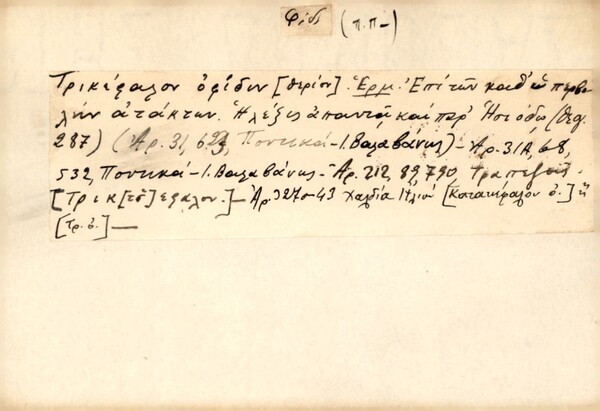 Φίδι (π.π-)
Τρικέφαλον ὀφίδιν [θερίον]. Ἑρμ. Ἐπὶ τῶν καθ' ὑπερβο
λὴν ἀτάκτων. Ἡ λέξις ἀπαντᾷ καὶ παρ' Ἡσιόδῳ (Θεογ.
287) (Ἀρ. 31, 623, Ποντικά - Ι. Βαλαβάνης) - Ἀρ. 31Α, 68,
532, Ποντικά - Ι. Βαλαβάνης - Ἀρ. 212, 89, 790, Τραπεζοῦς.
[Τρικ[τσ]έφαλον.] - Ἀρ. 327 43 Χαλδία [Κατακέφαλον ὀ.] ἢ
[Τρ. ὀ.] —